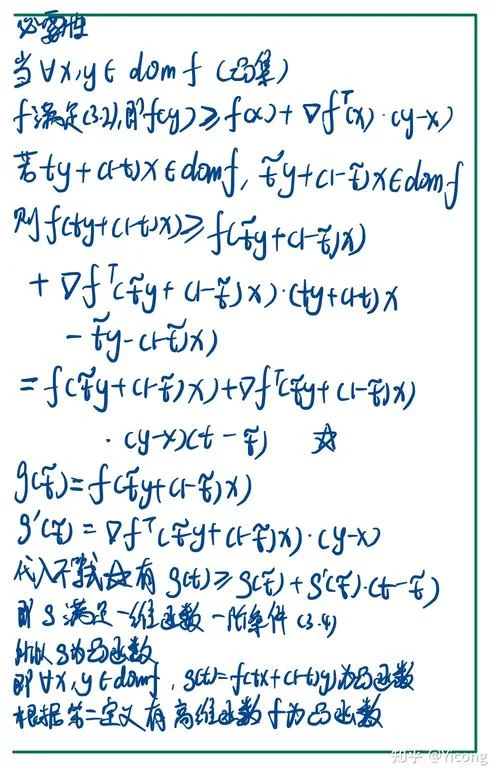 必要性
当∀x,y∈dom f (凸集)
f满足(3.2),即f(y)≥f(x)+∇fᵀ(x)·(y-x)
若ty+(1-t)x∈domf, t̃y+(1-t̃)x∈domf
则f(ty+(1-t)x)≥f(t̃y+(1-t̃)x)
+∇fᵀ(t̃y+(1-t̃)x)·(ty+(1-t)x
-t̃y-(1-t̃)x)
=f(t̃y+(1-t̃)x)+∇fᵀ(t̃y+(1-t̃)x)
·(y-x)(t-t̃) ☆
g(t̃)=f(t̃y+(1-t̃)x)
g'(t̃)=∇fᵀ(t̃y+(1-t̃)x)·(y-x)
代入不等式☆有 g(t)≥g(t̃)+g'(t̃)·(t-t̃)
即g满足一维函数一阶条件(3.4)
所以g为凸函数
即∀x,y∈domf, g(t)=f(tx+(1-t)y)为凸函数
根据第二定义有高维函数f为凸函数
知乎 @Yicong